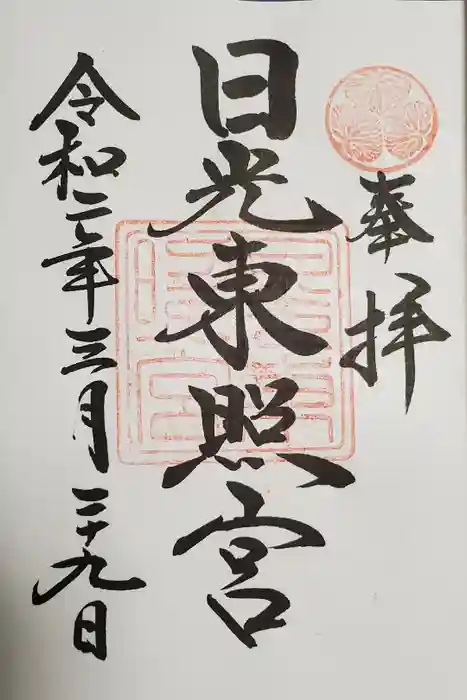 奉拝
日光東照宮
令和二年三月二十九日